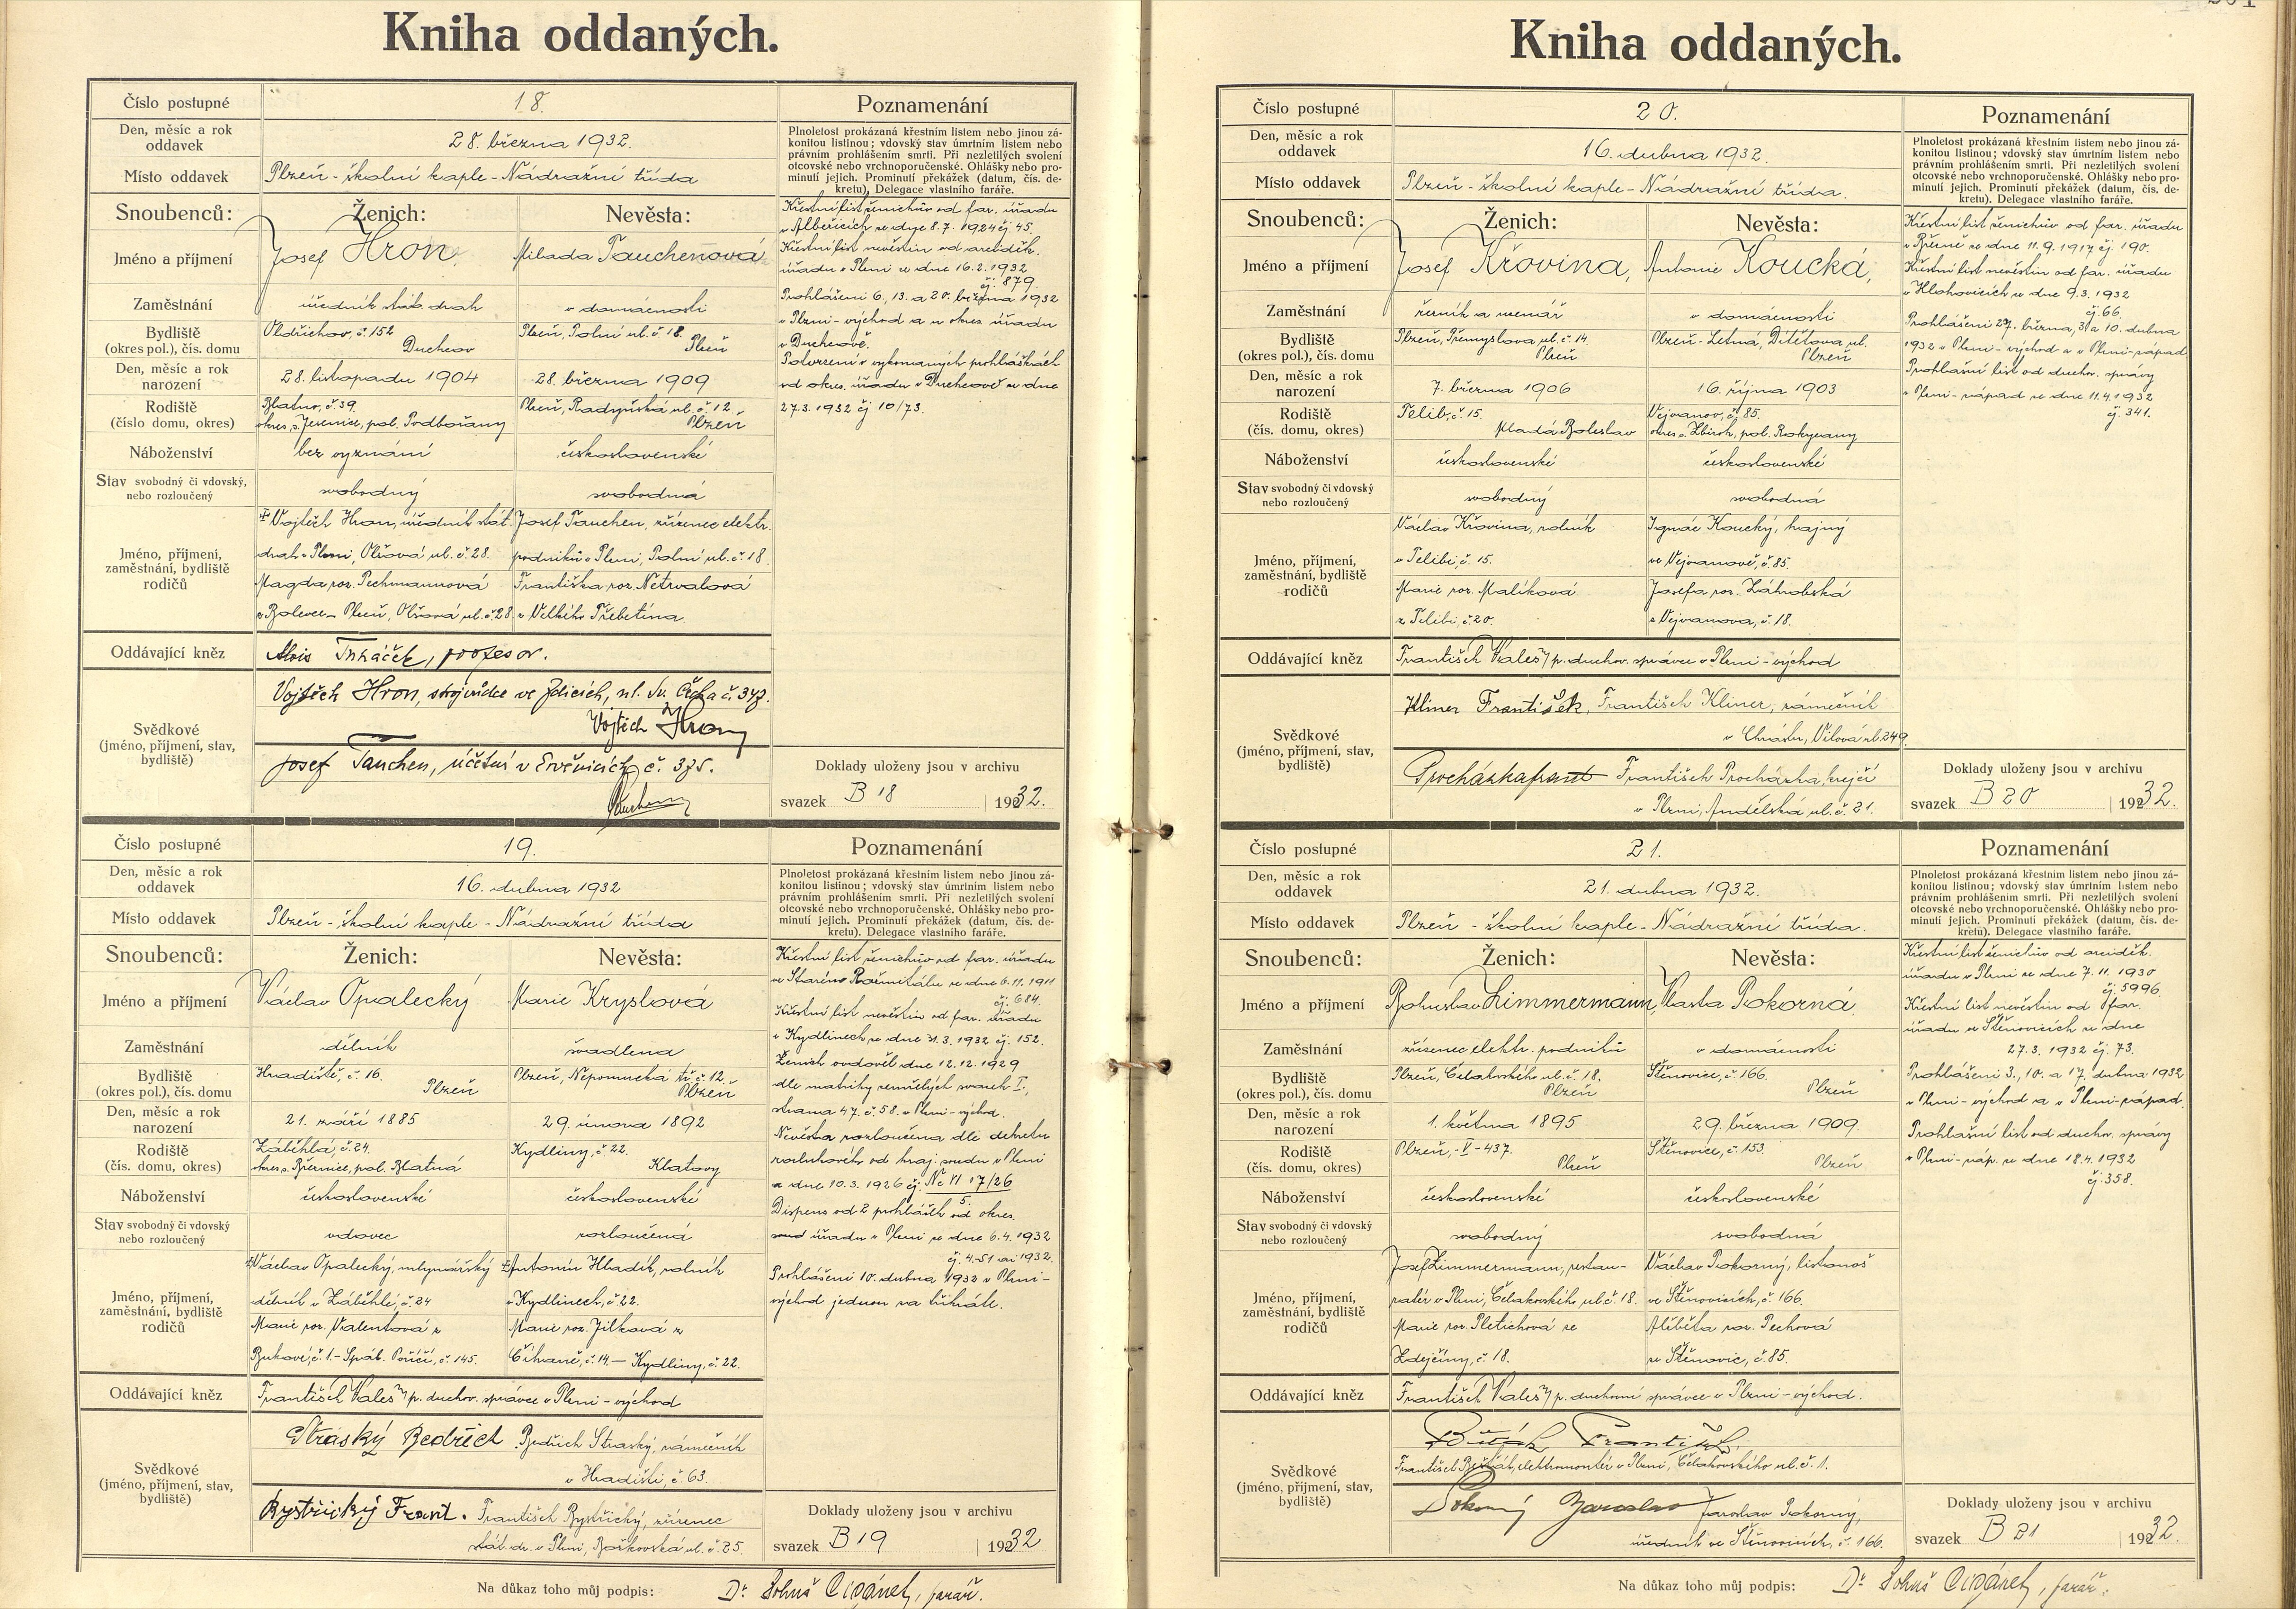 Kniha oddaných.
Číslo postupné
18.
Poznamenání
Den, měsíc a rok
oddavek
28. března 1932.
Plnoletost prokázaná křestním listem nebo jinou zá-
konitou listinou; vdovský stav úmrtním listem nebo
právním prohlášením smrti. Při nezletilých svolení
otcovské nebo vrchnoporučenské. Ohlášky nebo pro-
minutí jejich. Prominutí překážek (datum, čís. de-
kretu), Delegace vlastního faráře.
Místo oddavek
Plzeň - školní kaple - Nádražní třída
Snoubenců:
Ženich:
Nevěsta:
Jméno a příjmení
Josef Hron,
Milada Tauchenová
Zaměstnání
úředník stát. drah
v domácnosti
Bydliště
(okres pol.), čís. domu
Oldřichov, č. 152
Duchcov
Plzeň, Polní ul. č. 18.
Plzeň
Den, měsíc a rok
narození
28. listopadu 1904
28. března 1909
Rodiště
(číslo domu, okres)
Blatno, č. 39.
okres s. Jesenice, pol. Podbořany
Plzeň, Radyňská ul. č. 12.
Plzeň
Náboženství
bez vyznání
československé
Stav svobodný či vdovský,
nebo rozloučený
svobodný
svobodná
Jméno, příjmení,
zaměstnání, bydliště
rodičů
Vojtěch Hron, úředník stát.
drah v Plzni, Olšová ul. č. 28.
Magda roz. Pechmannová
z Bolevce - Plzeň, Olšová ul. č. 28
Josef Tauchen, zřízenec elektr.
podniků v Plzni, Polní ul. č. 18.
Františka roz. Netrvalová
z Velkého Přebetína.
Křestní list ženichův od far. úřadu
v Albeřicích ze dne 8. 7. 1924 čj. 45.
Křestní list nevěstin od arciděk.
úřadu v Plzni ze dne 16. 2. 1932
čj. 879.
Prohlášeni 6., 13. a 20. března 1932
v Plzni - východ a u okres. úřadu
v Duchcově.
Potvrzení o vykonaných prohláškách
od okres. úřadu v Duchcově ze dne
27.3. 1932 čj 10/73.
Oddávající kněz
Alois Tukáček, profesor.
Svědkové
(jméno, příjmení, stav,
bydliště)
Vojtěch Hron, strojvůdce ve Zdicích, ul. Sv. Čecha č. 347.
Vojtěch Hron
Josef Tauchen, účetní v Ervěnicích č. 375.
Tauchen
Doklady uloženy jsou v archivu
svazek B 18 1932.
Číslo postupné
19.
Poznamenání
Den, měsíc a rok
oddavek
16. dubna 1932
Plnoletost prokázaná křestním listem nebo jinou zá-
konitou listinou; vdovský stav úmrtním listem nebo
právním prohlášením smrti. Při nezletilých svolení
otcovské nebo vrchnoporučenské. Ohlášky nebo pro-
minutí jejich. Prominutí překážek (datum, čís. de-
kretu). Delegace vlastního faráře.
Místo oddavek
Plzeň - školní kaple - Nádražní třída
Snoubenců:
Ženich:
Nevěsta:
Jméno a příjmení
Václav Opalecký
Marie Kryslová
Zaměstnání
dělník
švadlena
Bydliště
(okres pol.), čís. domu
Hradiště, č. 16.
Plzeň
Plzeň, Nepomucká tř. č. 12.
Plzeň
Den, měsíc a rok
narození
21. září 1885
29. února 1892
Rodiště
(čís. domu, okres)
Záběhlá, č. 24.
okres s. Březnice, pol. Blatná
Kydliny, č. 22.
Klatovy
Náboženství
československé
československé
Stav svobodný či vdovský
nebo rozloučený
vdovec
rozloučená
Jméno, příjmení,
zaměstnání, bydliště
rodičů
Václav Opalecký, mlynářský
dělník v Záběhlé, č. 24
Marie roz. Valentová z
Bukové, č. 1. - Spál. Poříčí, č. 145.
Antonín Hladík, rolník
v Kydlinech, č. 22.
Marie roz. Jílková z
Číhaně, č. 14. - Kydliny, č. 22.
Křestní list ženichův od far. úřadu
ve Starém Rožmitálu ze dne 6. 11. 1911
čj. 684.
Křestní list nevěstin od far. úřadu
v Kydlinech ze dne 31. 3. 1932 čj. 152.
Ženich ovdověl dne 12. 12. 1929
dle matriky zemřelých svazek I.,
strana 47. č. 58. v Plzni - východ.
Nevěsta rozloučena dle dekretu
rozlukového od kraj. soudu v Plzni
ze dne 10. 3. 1926 čj. Nc VI 17/26
5.
Dispens od 2 prohlášek od okres.
úřadu v Plzni ze dne 6. 4. 1932
čj. 4-51 ai 1932.
Prohlášeni 10. dubna 1932 v Plzni -
východ jednou za třikráte.
Oddávající kněz
František Kaleš, p. duchov. správce v Plzni - východ
Svědkové
(jméno, příjmení, stav,
bydliště)
Straský Bedřich Bedřich Straský, zámečník
v Hradišti, č. 63.
Bystřický Frant. František Bystřický, zřízenec
stát. dr. v Plzni, Božkovská ul. č. 25.
Doklady uloženy jsou v archivu
svazek B 19 1932
Na důkaz toho můj podpis: Dr. Bohuš Cigánek, farář.
Kniha oddaných.
Číslo postupné
20.
Poznamenání
Den, měsíc a rok
oddavek
16. dubna 1932.
Plnoletost prokázaná křestním listem nebo jinou zá-
konitou listinou; vdovský stav úmrtním listem nebo
právním prohlášením smrti. Při nezletilých svolení
otcovské nebo vrchnoporučenské. Ohlášky nebo pro-
minutí jejich. Prominutí překážek (datum, čís. de-
kretu). Delegace vlastního faráře.
Místo oddavek
Plzeň - školní kaple - Nádražní třída.
Snoubenců:
Ženich:
Nevěsta:
Jméno a příjmení
Josef Křovina,
Antonie Koucká,
Zaměstnání
řezník a uzenář
v domácnosti
Bydliště
(okres pol.), čís. domu
Plzeň, Přemyslova ul. č. 14.
Plzeň
Plzeň - Letná, Dítětova ul.
Plzeň
Den, měsíc a rok
narození
7. března 1906
16. října 1903
Rodiště
(čís. domu, okres)
Telib, č. 15.
Mladá Boleslav
Vejvanov, č. 85.
okres s. Zbiroh, pol. Rokycany
Náboženství
československé
československé
Stav svobodný či vdovský
nebo rozloučený
svobodný
svobodná
Jméno, příjmení,
zaměstnání, bydliště
rodičů
Václav Křovina, rolník
v Telibi, č. 15.
Marie roz. Malíková
z Telibi, č. 20.
Ignác Koucký, hajný
ve Vejvanově, č. 85.
Josefa roz. Záhrobská
z Vejvanova, č. 18.
Křestní list ženichův od far. úřadu
v Březně ze dne 11. 9. 1917 čj. 190.
Křestní list nevěstin od far. úřadu
v Hlohovicích ze dne 9. 3. 1932
čj. 66.
Prohlášeni 27. března, 3. a 10. dubna
1932 v Plzni - východ a v Plzni - západ
Prohlašní list od duchov. správy
v Plzni - západ ze dne 11. 4. 1932
čj. 341.
Oddávající kněz
František Kaleš, p. duchov. správce v Plzni - východ
Svědkové
(jméno, příjmení, stav,
bydliště)
Kliner František, František Kliner, zámečník
v Chrástu, Vilová ul. 249.
Procházka frant František Procházka, krejčí
v Plzni, Andělská ul. č. 21.
Doklady uloženy jsou v archivu
svazek B 20 1932.
Číslo postupné
21.
Poznamenání
Den, měsíc a rok
oddavek
21. dubna 1932.
Plnoletost prokázaná křestním listem nebo jinou zá-
konitou listinou; vdovský stav úmrtním listem nebo
právním prohlášením smrti. Při nezletilých svolení
otcovské nebo vrchnoporučenské. Ohlášky nebo pro-
minutí jejich. Prominutí překážek (datum, čís. de-
kretu). Delegace vlastního faráře.
Místo oddavek
Plzeň - školní kaple - Nádražní třída.
Snoubenců:
Ženich:
Nevěsta:
Jméno a příjmení
Bohuslav Zimmermann,
Vlasta Pokorná
Zaměstnání
zřízenec elektr. podniků
v domácnosti
Bydliště
(okres pol.), čís. domu
Plzeň, Čelakovského ul. č. 18.
Plzeň
Štěnovice, č. 166.
Plzeň
Den, měsíc a rok
narození
1. května 1895
29. března 1909.
Rodiště
(čís. domu, okres)
Plzeň, - V - 437.
Plzeň
Štěnovice, č. 153.
Plzeň
Náboženství
československé
československé
Stav svobodný či vdovský
nebo rozloučený
svobodný
svobodná
Jméno, příjmení,
zaměstnání, bydliště
rodičů
Josef Zimmermann, restau-
ratér v Plzni, Čelakovského ul. č. 18.
Marie roz. Pletichová ze
Zdejčiny, č. 18.
Václav Pokorný, listonoš
ve Štěnovicích, č. 166.
Alžběta roz. Pechová
ze Štěnovic, č. 85.
Křestní list ženichův od arciděk.
úřadu v Plzni ze dne 7. 11. 1930
čj. 5996.
Křestní list nevěstin od far.
úřadu ve Štěnovicích ze dne
27. 3. 1932 čj. 73.
Prohlášeni 3., 10. a 17. dubna 1932
v Plzni - východ a v Plzni - západ.
Prohlašní list od duchov. správy
v Plzni - záp. ze dne 18. 4. 1932
čj. 358.
Oddávající kněz
František Kaleš, p. duchovní správce v Plzni - východ.
Svědkové
(jméno, příjmení, stav,
bydliště)
František
František elektromontér v Plzni, Čelakovského ul. č. 1.
Pokorný Jaroslav Jaroslav Pokorný,
úředník ve Štěnovicích, č. 166.
Doklady uloženy jsou v archivu
svazek B 21 1932.
Na důkaz toho můj podpis: Dr. Bohuš Cigánek, farář.